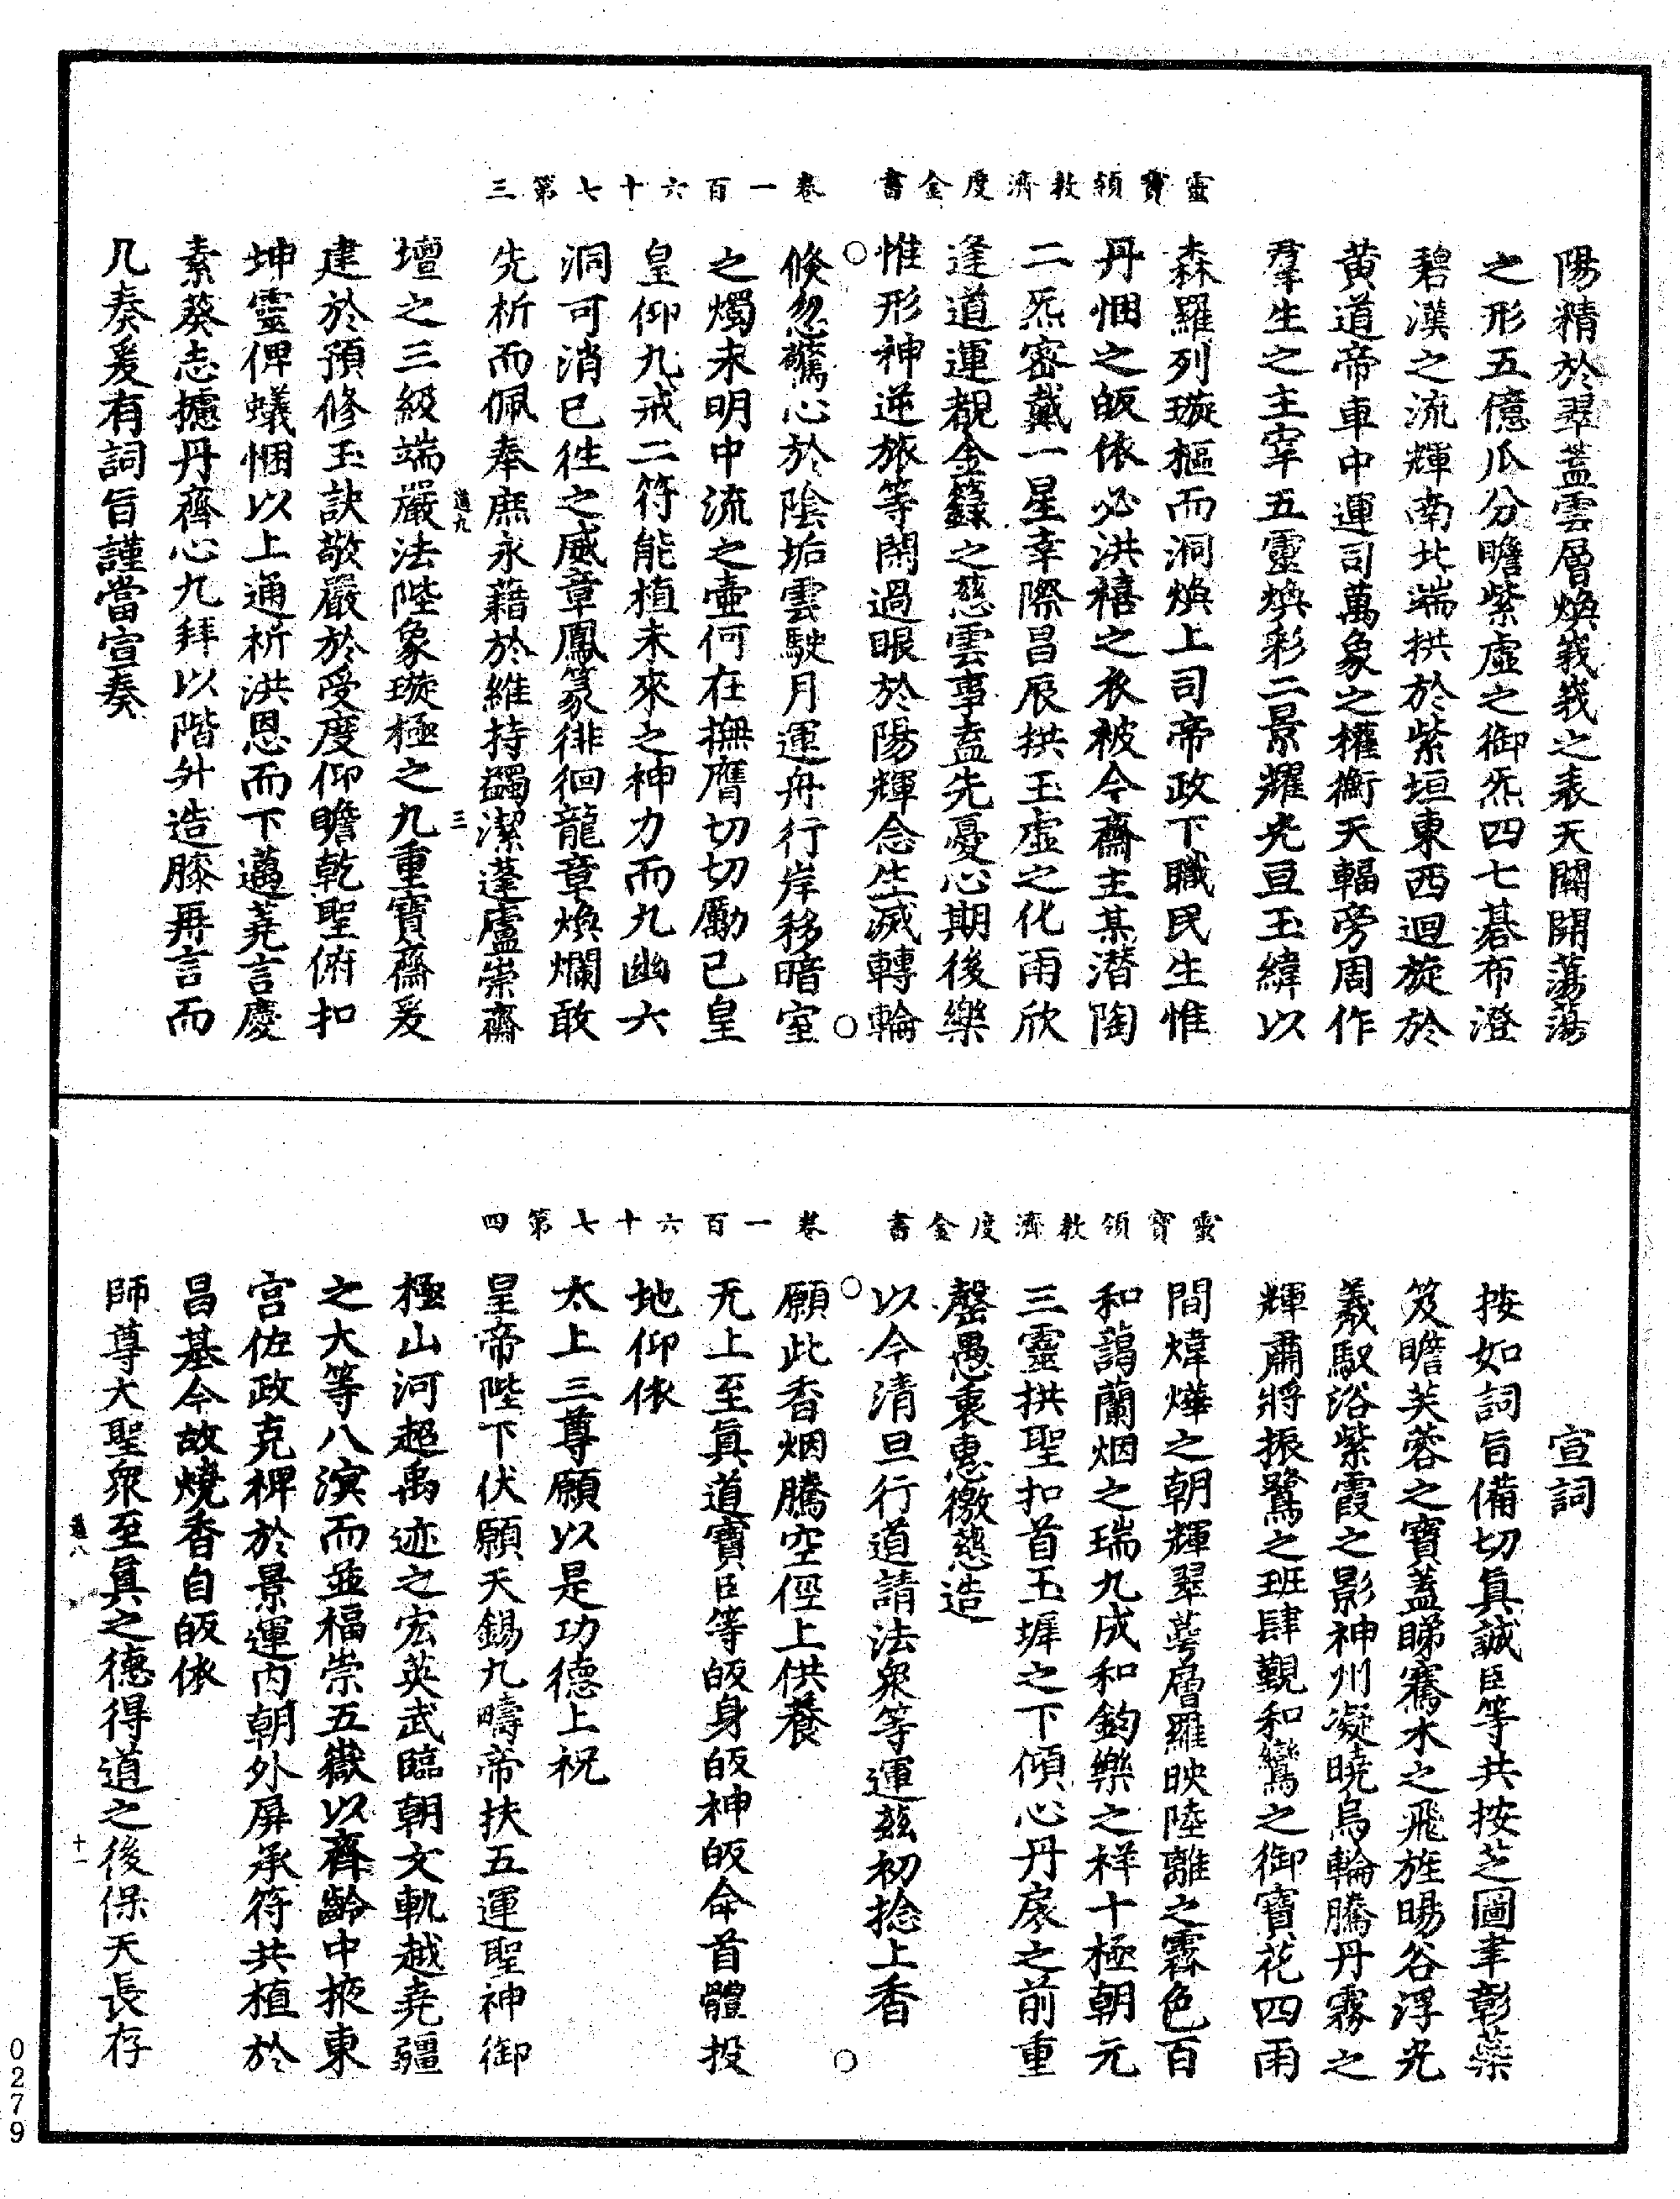 靈寶領教濟度金書　卷一百六十七第三
陽精於翠蓋雲層煥峩峩之表天關開蕩蕩
之形五億瓜分瞻紫虛之御炁四七碁布澄
碧漢之流輝南北端拱於紫垣東西迴旋於
黃道帝車中運司萬象之權衡天輻旁周作
羣生之主宰五靈煥彩二景耀光亘玉緯以
森羅列璇樞而洞煥上司帝政下職民生惟
丹悃之皈依必洪禧之衣被今齋主某潜陶
二炁密戴一星幸際昌辰拱玉虛之化雨欣
逢道運覩金籙之慈雲事盍先憂心期後樂
惟形神逆旅等閑過眼於陽輝念生滅轉輪
倐忽驚心於陰垢雲駛月運舟行岸移暗室
之燭未明中流之壷何在撫膺切切勵己皇
皇仰九戒二符能植未來之神力而九幽六
洞可消已徃之威章鳳篆徘徊龍章煥爛敢
先析而佩奉庶永藉於維持蠲潔蓬廬崇齋
壇之三級端嚴法陛象璇極之九重寶齋爰
建於預修玉訣敬嚴於受度仰瞻乾聖俯扣
坤靈俾蟻悃以上通析洪恩而下邁蕘言慶
素葵志攄丹齊心九拜以階升造膝再言而
几奏爰有詞旨謹當宣奏
遘九
三
靈寶領教濟度金書　卷一百六十七第四
宣詞
按如詞旨備切眞誠臣等共按芝圖聿彰藥
笈瞻芙蓉之寶蓋睇騫木之飛旌暘谷浮光
義馭浴紫霞之影神州凝曉烏輪騰丹霧之
輝肅將振鷺之班肆覲和鸞之御寶花四雨
間煒燁之朝輝翠蕚層羅映陸離之霽色百
和藹蘭烟之瑞九成和鈞樂之祥十極朝元
三靈拱聖扣首玉墀之下傾心丹扆之前重
罄愚衷惠徼慈造
以今清旦行道請法衆等運茲初捻上香
願此香烟騰空徑上供養
无上至眞道寶臣等皈身皈神皈命首體投
地仰依
太上三尊願以是功德上祝
皇帝陛下伏願天錫九疇帝扶五運聖神御
極山河超禹迹之宏英武臨朝文軌越堯疆
之大等八溟而並福崇五嶽以齊齡中掖東
宮佐政克稗於景運内朝外屏承符共植於
昌基今故燒香自皈依
師尊大聖衆至眞之德得道之後保天長存
遘八
十一
0279